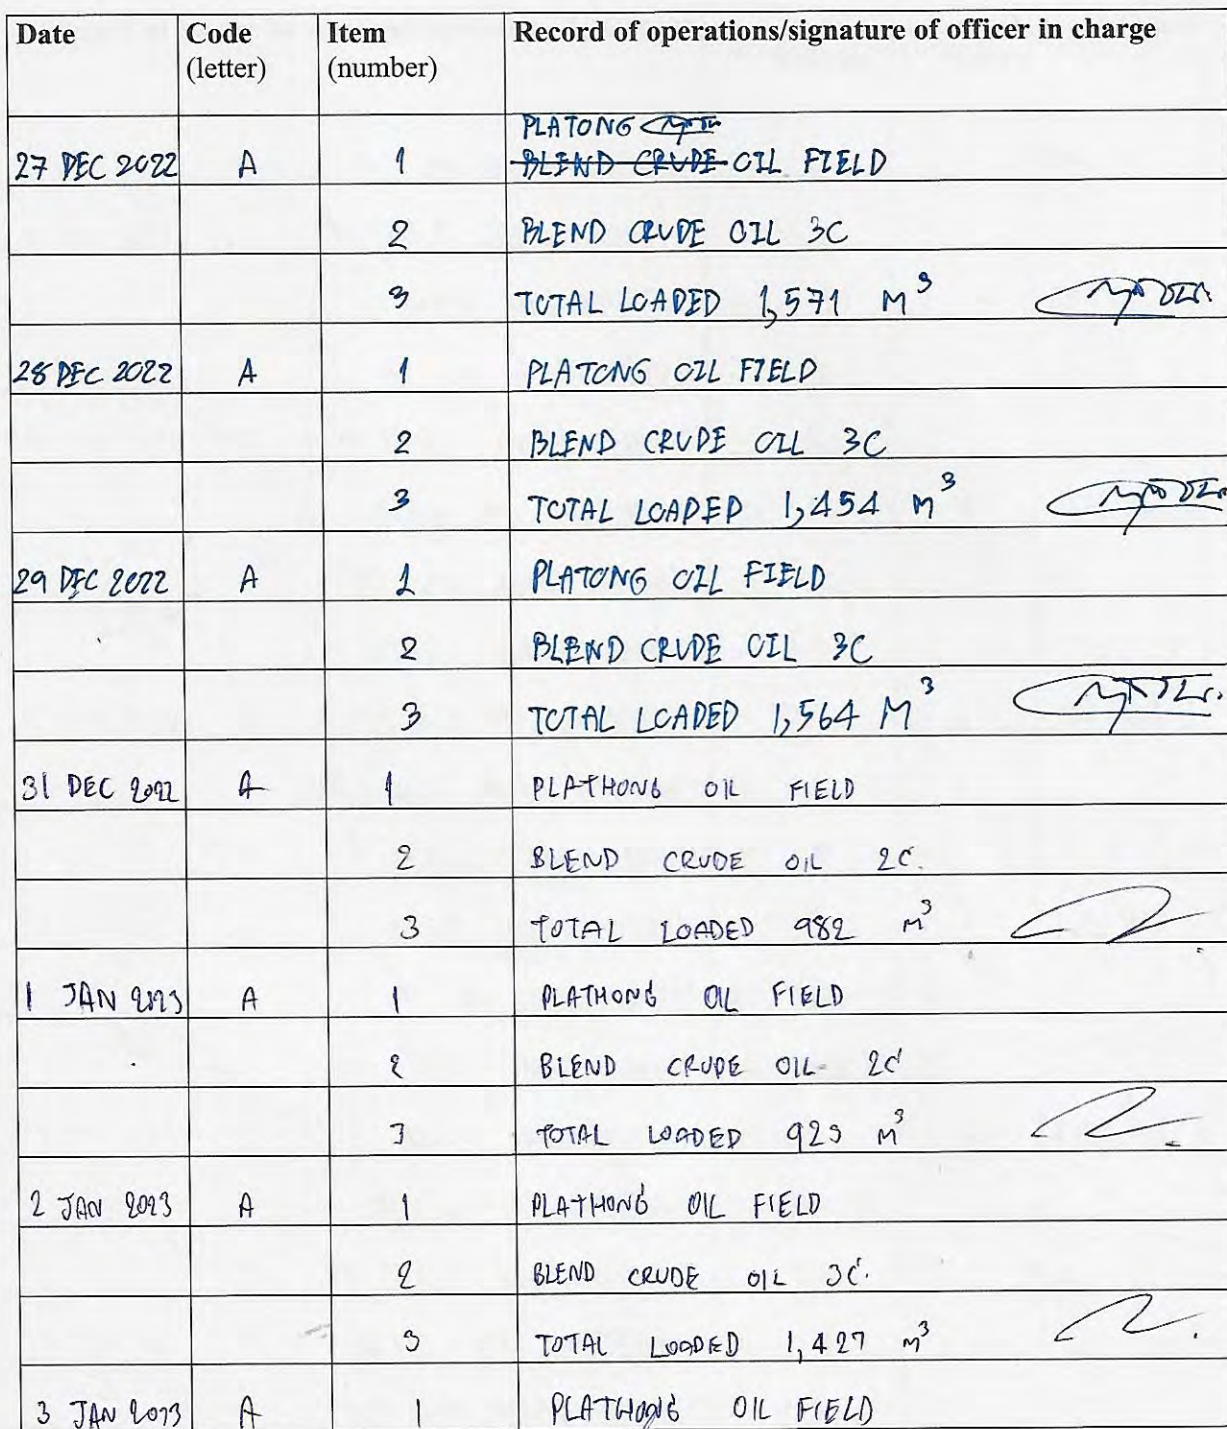 Date Code Item Record of operations/signature of officer in charge
(letter) (number)
PLATONG
27 DEC 2022 A 1 BLEND CRUDE OIL FIELD
2 BLEND CRUDE OIL 3C
3 TOTAL LOADED 1,571 M³
28 DEC 2022 A 1 PLATONG OIL FIELD
2 BLEND CRUDE OIL 3C
3 TOTAL LOADED 1,454 M³
29 DEC 2022 A 1 PLATONG OIL FIELD
2 BLEND CRUDE OIL 3C
3 TOTAL LOADED 1,564 M³
31 DEC 2022 A 1 PLATHONG OIL FIELD
2 BLEND CRUDE OIL 2C.
3 TOTAL LOADED 982 M³
1 JAN 2023 A 1 PLATHONG OIL FIELD
2 BLEND CRUDE OIL 2C
3 TOTAL LOADED 923 M³
2 JAN 2023 A 1 PLATHONG OIL FIELD
2 BLEND CRUDE OIL 3C.
3 TOTAL LOADED 1,427 M³
3 JAN 2023 A 1 PLATHONG OIL FIELD